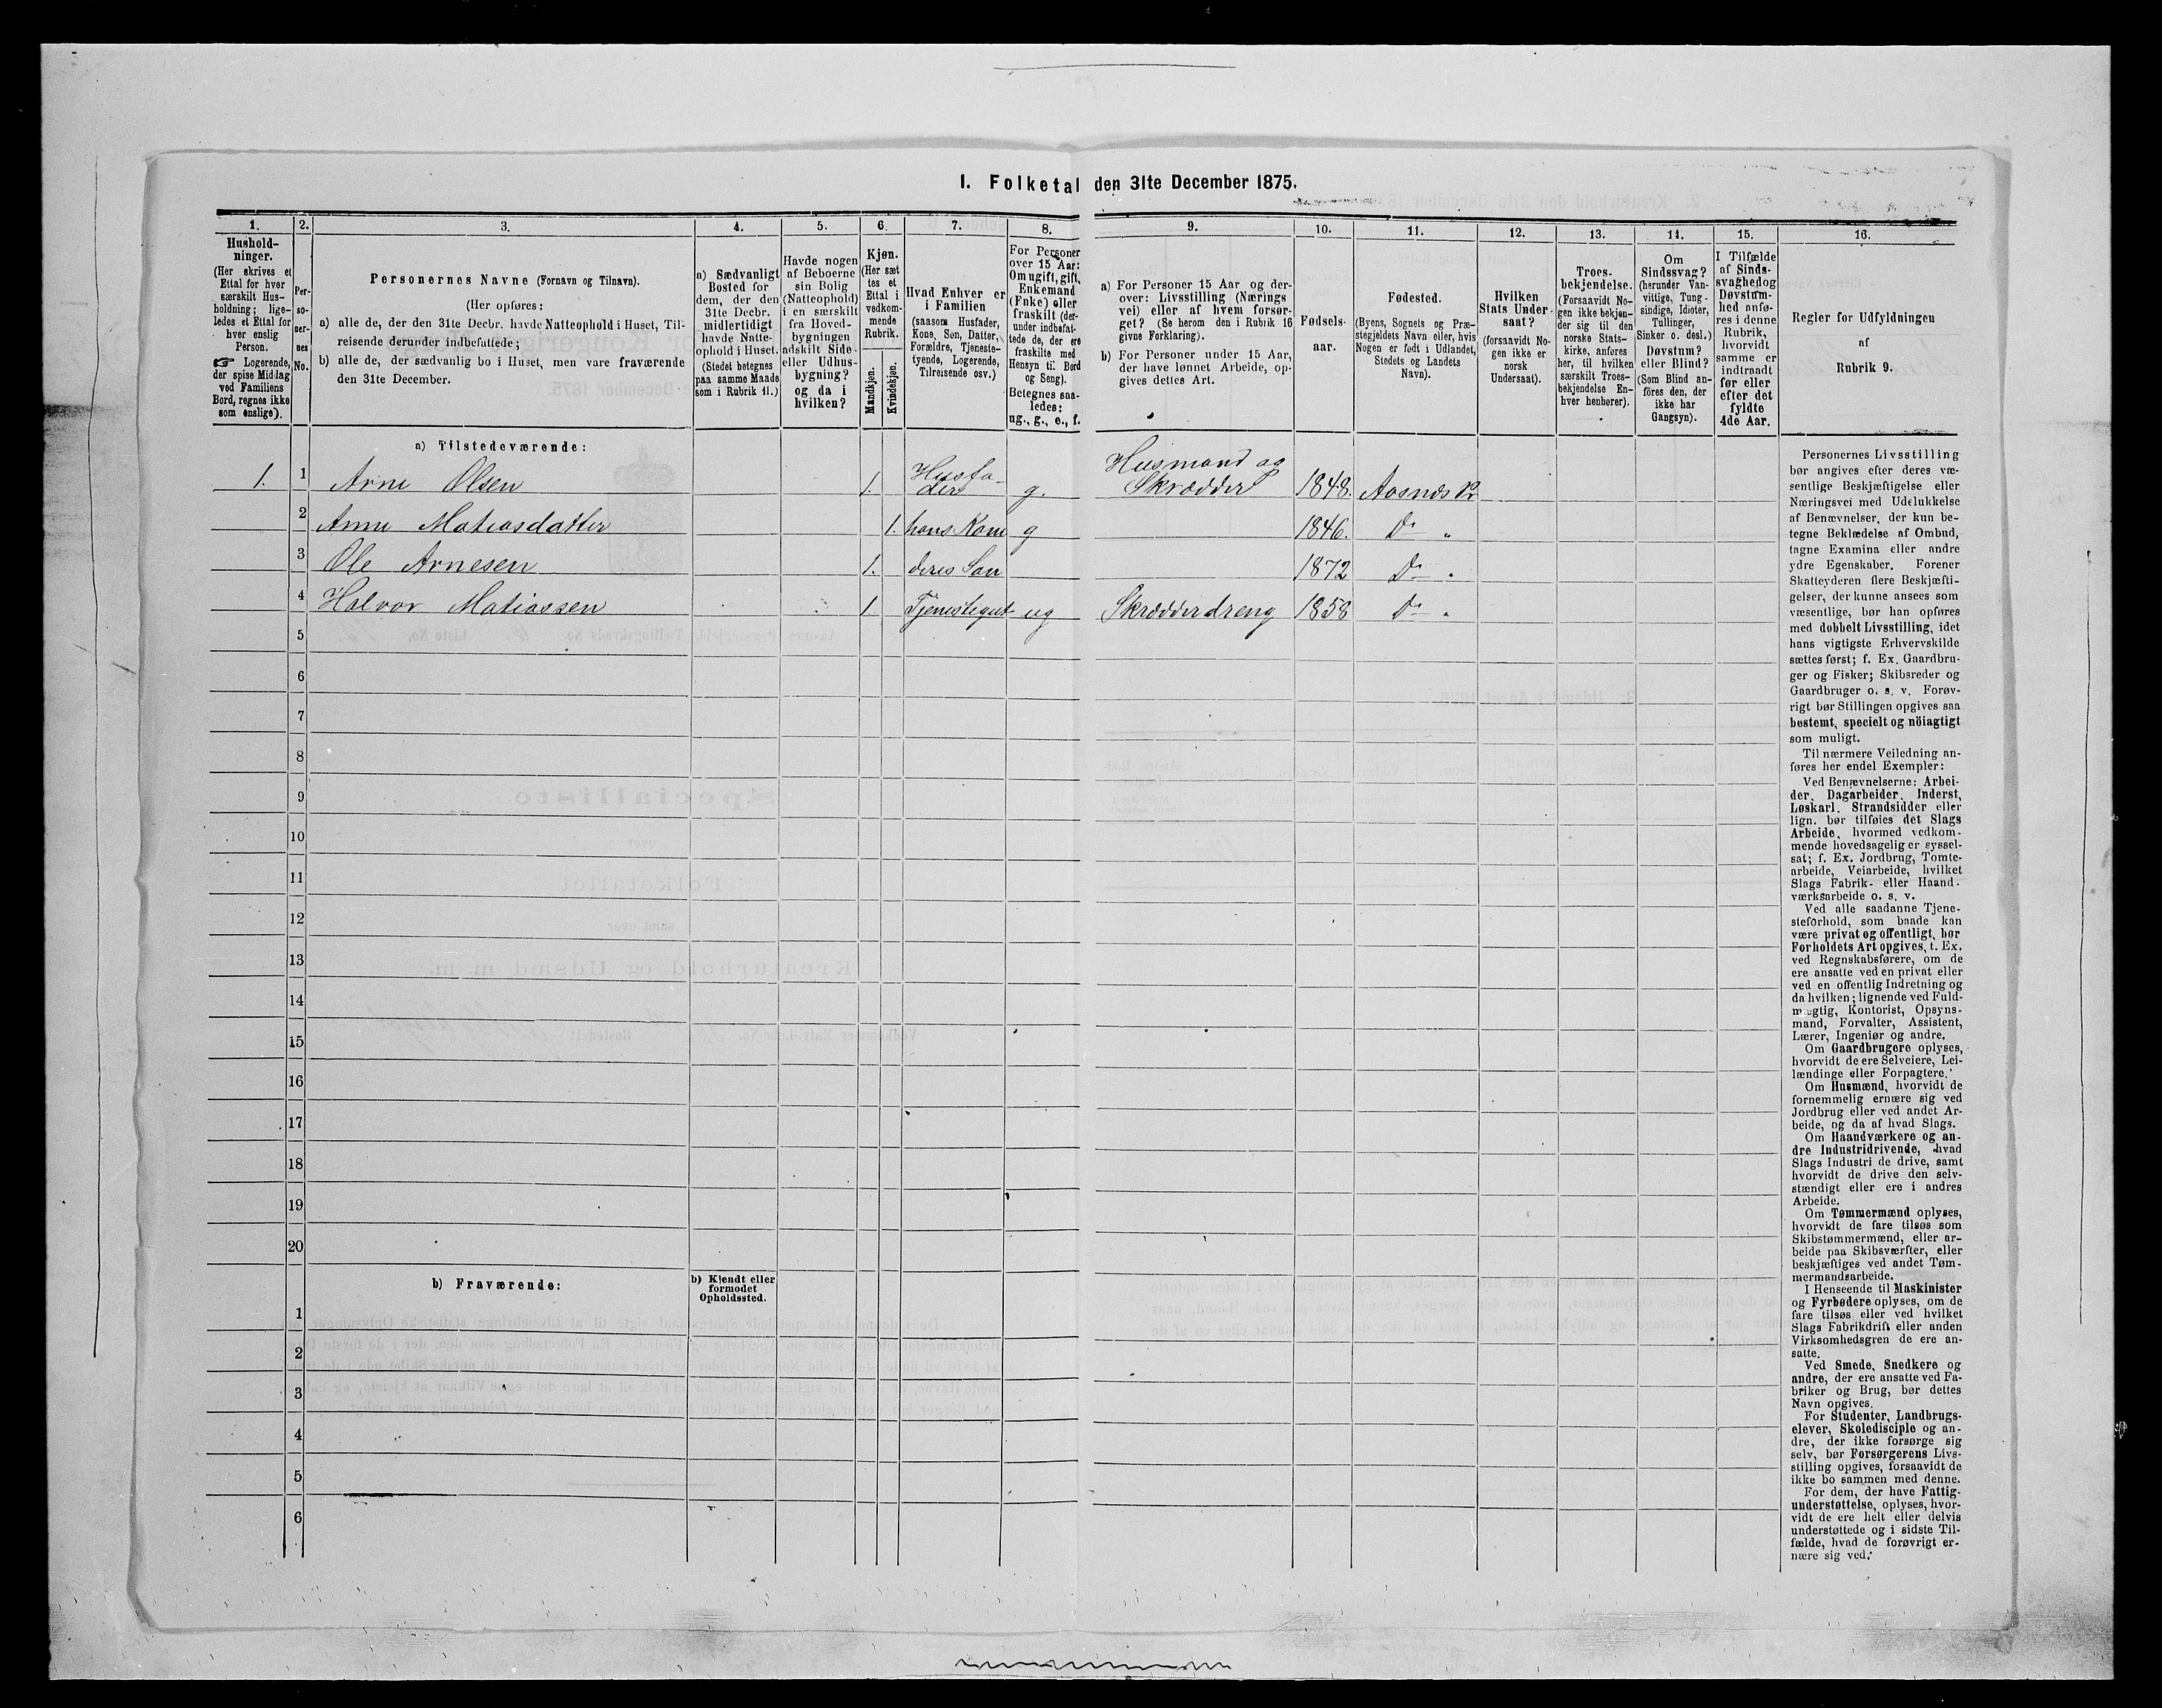 1. Folketal den 31te December 1875.
1.
2.
3.
4.
5.
6.
7.
8.
9.
10.
11.
12.
13.
14.
15.
16.
Hushold-
ninger.
(Her skrives et
Ettal for hver
særskilt Hus-
holdning; lige-
ledes et Ettal for
hver enslig
Person.
☞ Logerende,
der spise Middag
ved Familiens
Bord, regnes ikke
som enslige).
Per-
so-
ner-
nes
No.
Personernes Navne (Fornavn og Tilnavn).
(Her opføres:
a) alle de, der den 31te Decbr. havde Natteophold i Huset, Til-
reisende derunder indbefattede;
b) alle de, der sædvanlig bo i Huset, men vare fraværende
den 31te December.
a) Sædvanligt
Bosted for
dem, der den
31te Decbr.
midlertidigt
havde Natte-
ophold i Huset.
(Stedet betegnes
paa samme Maade
som i Rubrik 11.)
Havde nogen
af Beboerne
sin Bolig
(Natteophold)
i en særskilt
fra Hoved-
bygningen
adskilt Side-
eller Udhus-
bygning?
og da i
hvilken?
Kjøn.
(Her sæt
tes et
Ettal i
vedkom-
mende
Rubrik.
Mandkjøn.
Kvindekjøn.
Hvad Enhver er
i Familien
(saasom Husfader,
Kone, Søn, Datter,
Forældre, Tjeneste-
tyende, Logerende,
Tilreisende osv.)
For Personer
over 15 Aar:
Om ugift, gift,
Enkemand
(Enke) eller
fraskilt (der-
under indbefat-
tede de, der ere
fraskilte med
Hensyn til Bord
og Seng).
Betegnes saa-
ledes:
ug., g., e., f.
a) For Personer 15 Aar og der-
over: Livsstilling (Nærings
vei) eller af hvem forsør-
get? (Se herom den i Rubrik 16
givne Forklaring).
b) For Personer under 15 Aar,
der have lønnet Arbeide, op-
gives dettes Art.
Fødsels-
aar.
Fødested.
(Byens, Sognets og Præ-
stegjeldets Navn eller, hvis
Nogen er født i Udlandet,
Stedets og Landets
Navn).
Hvilken
Stats Under-
saat?
(forsaavidt No-
gen ikke er
norsk
Undersaat).
Troes-
bekjendelse.
(Forsaavidt No-
gen ikke bekjen-
der sig til den
norske Stats-
kirke, anføres
her, til hvilken
særskilt Troes-
bekjendelse En-
hver henhører).
Om
Sindssvag?
(herunder Van-
vittige, Tung-
sindige, Idioter,
Tullinger,
Sinker o. desl.)
Døvstum?
eller Blind?
(Som Blind an-
føres den, der
ikke har
Gangsyn).
I Tilfælde
af Sinds-
svaghed og
Døvstum-
hed anfø-
res i denne
Rubrik,
hvorvidt
samme er
indtraadt
før eller
efter det
fyldte
4de Aar.
Regler for Udfyldningen
af
Rubrik 9.
a) Tilstedeværende:
1. 1 Arne Olsen 1. Husfa-
der g. Husmand og
Skrædder 1848. Aasnæs Pr
2 Anne Matiasdatter 1. hans Kone g 1846. Do "
3 Ole Arnesen 1. deres Søn 1872 Do "
4 Halvor Matiassen 1 Tjenestegut ug Skrædderdreng 1858 Do "
5
6
7
8
9
10
11
12
13
14
15
16
17
18
19
20
b) Fraværende:
b) Kjendt eller
formodet
Opholdssted.
1
2
3
4
5
6
Personernes Livsstilling
bør angives efter deres væ-
sentlige Beskjæftigelse eller
Næringsvei med Udelukkelse
af Benævnelser, der kun be-
tegne Beklædelse af Ombud,
tagne Examina eller andre
ydre Egenskaber. Forener
Skatteyderen flere Beskjæfti-
gelser, der kunne ansees som
væsentlige, bør han opføres
med dobbelt Livsstilling, idet
hans vigtigste Erhvervskilde
sættes først; f. Ex. Gaardbru-
ger og Fisker; Skibsreder og
Gaardbruger o. s. v. Forøv-
rigt bør Stillingen opgives saa
bestemt, specielt og nöiagtigt
som muligt.
Til nærmere Veiledning an-
føres her endel Exempler:
Ved Benævnelserne: Arbei-
der, Dagarbeider, Inderst,
Løskarl, Strandsidder eller
lign. bør tilføies det Slags
Arbeide, hvormed vedkom-
mende hovedsagelig er syssel-
sat; f. Ex. Jordbrug, Tomte-
arbeide, Veiarbeide, hvilket
Slags Fabrik- eller Haand-
værksarbeide o. s. v.
Ved alle saadanne Tjene-
steforhold, som baade kan
være privat og offentligt, bør
Forholdets Art opgives, t. Ex.
ved Regnskabsførere, om de
ere ansatte ved en privat eller
ved en offentlig Indretning og
da hvilken; lignende ved Fuld-
mægtig, Kontorist, Opsyns-
mand, Forvalter, Assistent,
Lærer, Ingeniør og andre.
Om Gaardbrugere oplyses,
hvorvidt de ere Selveiere, Lei-
lændinge eller Forpagtere.
Om Husmænd, hvorvidt de
fornemmelig ernære sig ved
Jordbrug eller ved andet Ar-
beide, og da af hvad Slags.
Om Haandværkere og an-
dre Industridrivende, hvad
Slags Industri de drive, samt
hvorvidt de drive den selv-
stændigt eller ere i andres
Arbeide.
Om Tømmermænd oplyses,
hvorvidt de fare tilsøs som
Skibstømmermænd, eller ar-
beide paa Skibsværfter, eller
beskjæftiges ved andet Tøm-
mermandsarbeide.
I Henseende til Maskinister
og Fyrbødere oplyses, om de
fare tilsøs eller ved hvilket
Slags Fabrikdrift eller anden
Virksomhedsgren de ere an-
satte.
Ved Smede, Snedkere og
andre, der ere ansatte ved Fa-
briker og Brug, bør dettes
Navn opgives.
For Studenter, Landbrugs-
elever, Skoledisciple og an-
dre, der ikke forsørge sig
selv, bør Forsørgerens Livs-
stilling opgives, forsaavidt de
ikke bo sammen med denne.
For dem, der have Fattig-
understøttelse, oplyses, hvor-
vidt de ere helt eller delvis
understøttede og i sidste Til-
fælde, hvad de forøvrigt er-
nære sig ved.